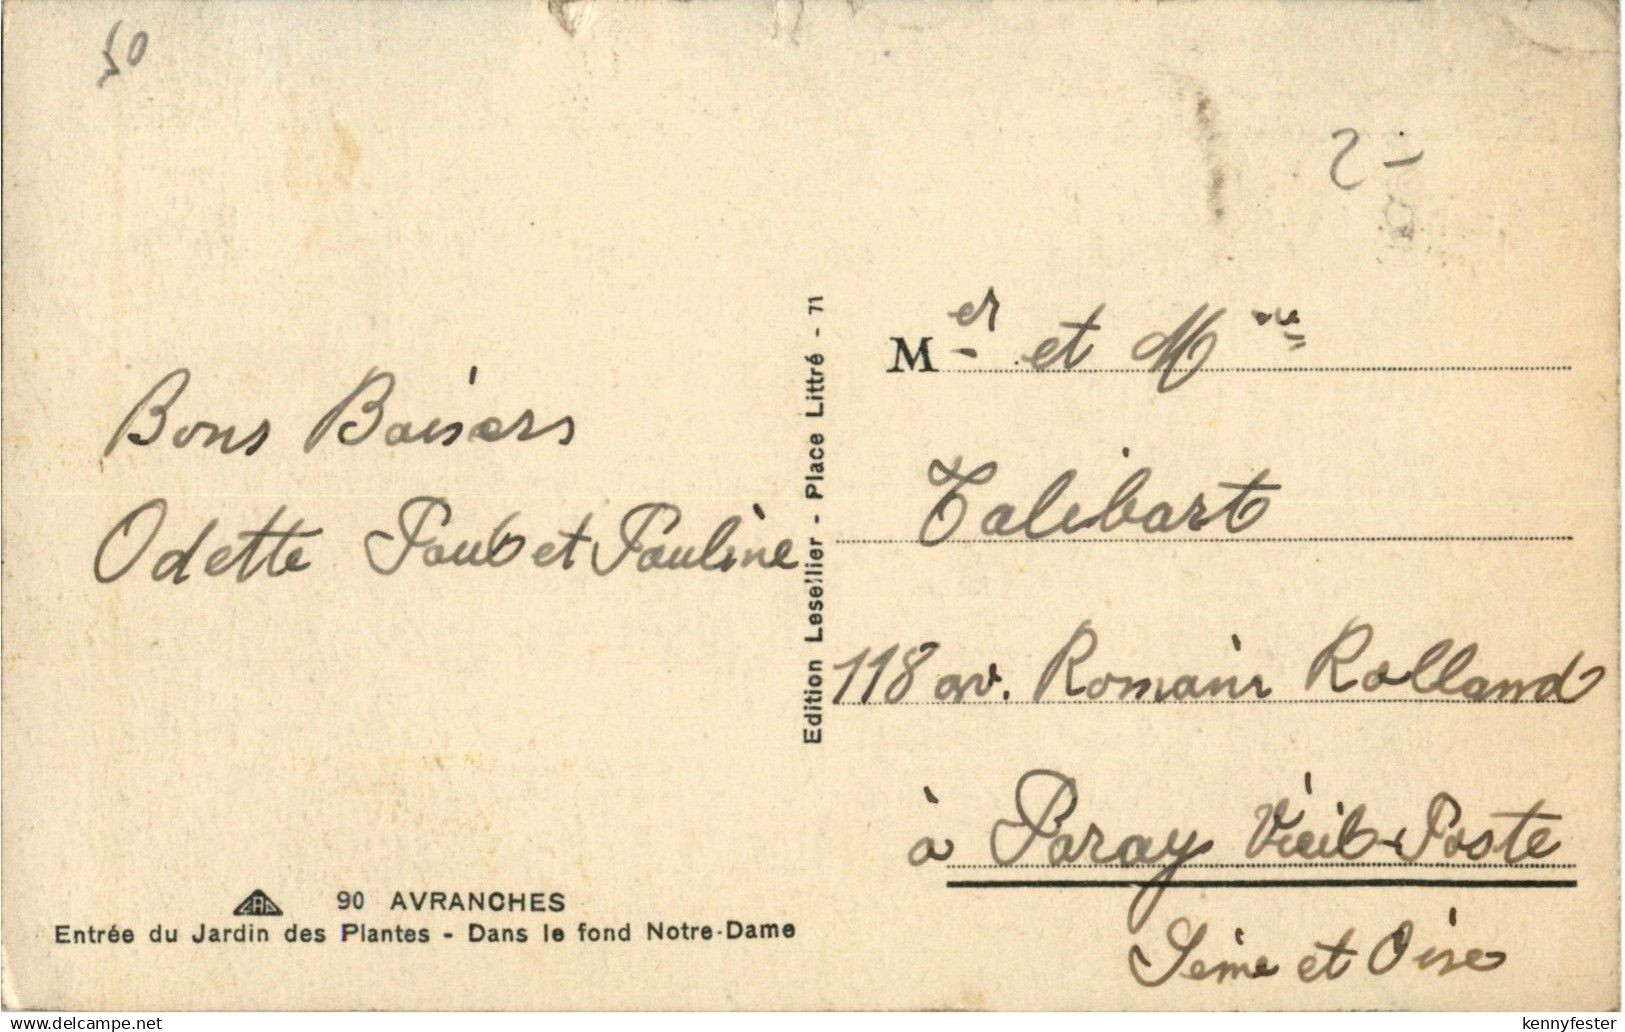 50
2-
Bons Baisers
Odette Paul et Pauline
Edition Lesellier - Place Littré - 71
Mer et Mme
Talibart
118 av. Romain Rolland
à Paray Vieil-Poste
Seine et Oise
90 AVRANCHES
Entrée du Jardin des Plantes - Dans le fond Notre-Dame
www.delcampe.net
kennyfester